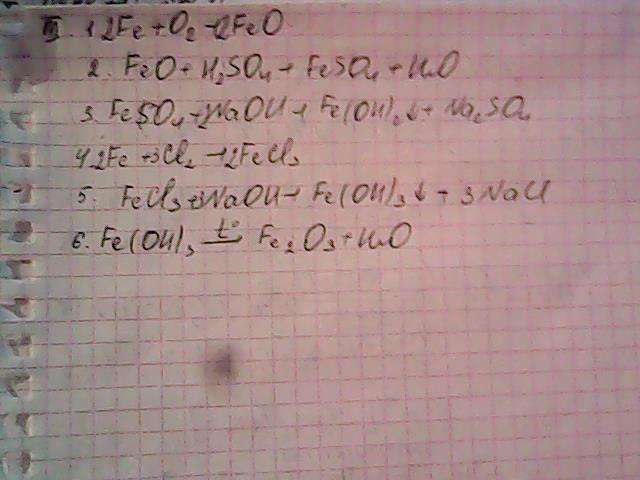 II. 1 2Fe + O2 → 2FeO
2. FeO + H2SO4 → FeSO4 + H2O
3. FeSO4 + 2NaOH → Fe(OH)2↓ + Na2SO4
4 2Fe + 3Cl2 → 2FeCl3
5. FeCl3 + 3NaOH → Fe(OH)3↓ + 3NaCl
6. Fe(OH)3 t° → Fe2O3 + H2O